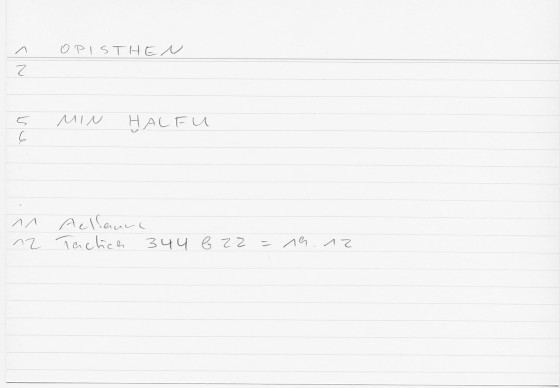 1 OPISTHEN
2
5 MIN ḪALFU
6
11 Aelianus
12 Tactica 344 B 22 = 19.12